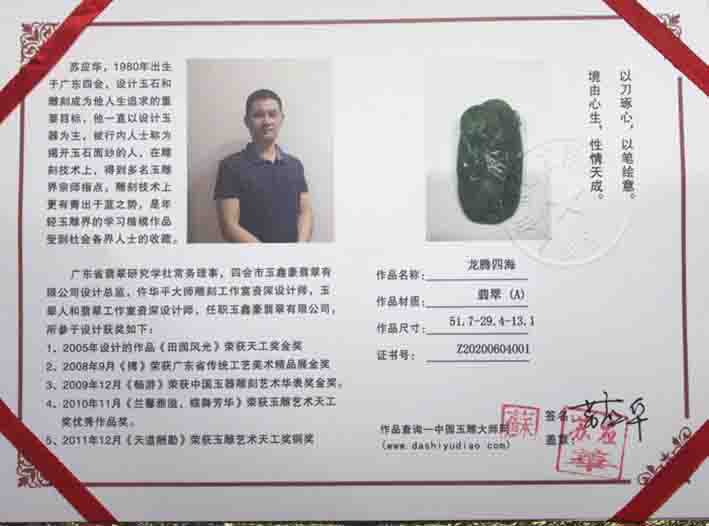 苏应华，1980年出生
于广东四会，设计玉石和
雕刻成为他人生追求的重
要目标，他一直以设计玉
器为主，被行内人士称为
揭开玉石面纱的人，在雕
刻技术上，得到多名玉雕
界宗师指点，雕刻技术上
更有青出于蓝之势，是年
轻玉雕界的学习楷模作品
受到社会各界人士的收藏。
以刀琢心，以笔绘意。
境由心生，性情天成。
广东省翡翠研究学社常务理事，四会市玉鑫豪翡翠有
限公司设计总监、许华平大师雕刻工作室资深设计师，玉
翠人和翡翠工作室资深设计师，任职玉鑫豪翡翠有限公司，
所参于设计获奖如下：
1、2005年设计的作品《田园风光》荣获天工奖金奖
2、2008年9月《搏》荣获广东省传统工艺美术精品展金奖
3、2009年12月《畅游》荣获中国玉器雕刻艺术华表奖金奖。
4、2010年11月《兰馨雅溢、蝶舞芳华》荣获玉雕艺术天工
奖优秀作品奖。
5、2011年12月《天道酬勤》荣获玉雕艺术天工奖铜奖
作品名称：龙腾四海
作品材质：翡翠（A）
作品尺寸：51.7-29.4-13.1
证书号：Z20200604001
签名：苏应华
作品查询一中国玉雕大师网
盖章：
(www.dashiyudiao.com)
蘇